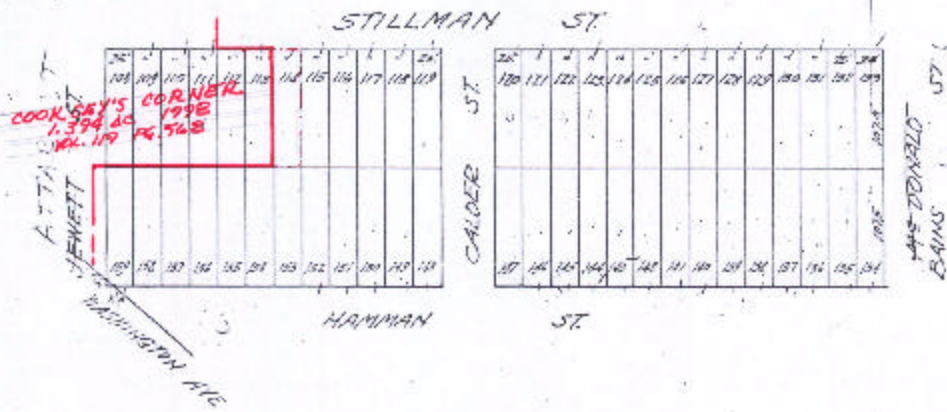 STILLMAN ST.
108 109 110 111 112 113 114 115 116 117 118 119
120 121 122 123 124 125 126 127 128 129 130 131 132 133
COOKSEY'S CORNER
1.394 AC 1998
VOL. 119 PG. 568
JEWETT ST.
CALDER ST.
BAINS ST.
159 158 157 156 155 154 153 152 151 150 149 148
147 146 145 144 143 142 141 140 139 138 137 136 135 134
HAMMAN ST.
WASHINGTON AVE